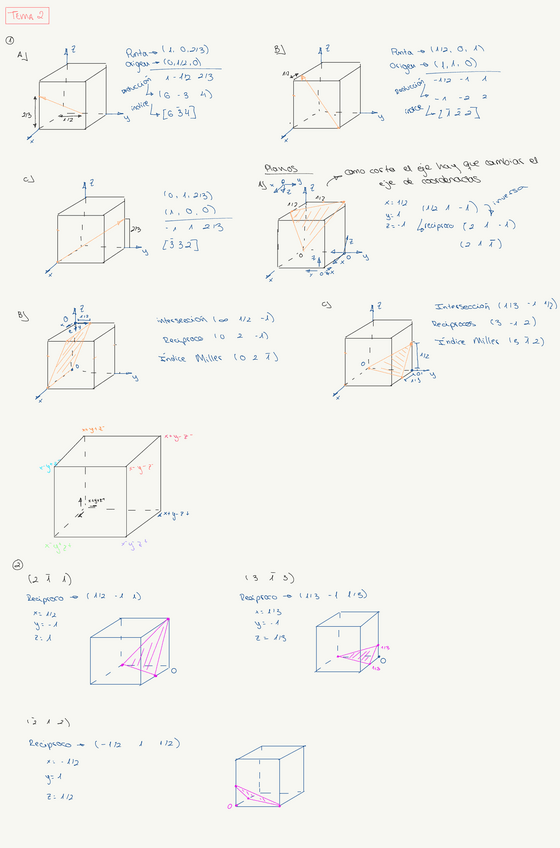 Tema 2
①
A)
z
y
x
2/3
1/2
Punta → (1, 0, 2/3)
Origen → (0, 1/2, 0)
1 -1/2 2/3
reducción
(6 -3 4)
índice
[6 3̄ 4]
B)
z
y
x
1/2
Punta → (1/2, 0, 1)
Origen → (1, 1, 0)
-1/2 -1 1
reducción
-1 -2 2
índice
[1̄ 2̄ 2]
C)
z
y
x
2/3
(0, 1, 2/3)
(1, 0, 0)
-1 1 2/3
[3̄ 3 2]
Planos
como corta el eje hay que cambiar el eje de coordenadas
A)
1/2
1/2
x = 1/2
y = 1
z = -1
(1/2 1 -1)
inversa
recíproco (2 1 -1)
(2 1 1̄)
B)
z
y
x
0
1/2
Intersección (∞ 1/2 -1)
Recíproco (0 2 -1)
Índice Miller (0 2 1̄)
C)
z
y
x
0
1/2
1/3
Intersección (1/3 -1 1/2)
Recíprocos (3 -1 2)
Índice Miller (3 1̄ 2)
x+y-z-
x+y-z+
②
(2 1̄ 1)
Recíproco → (1/2 -1 1)
x = 1/2
y = -1
z = 1
0
(3 1̄ 3)
Recíproco → (1/3 -1 1/3)
x = 1/3
y = -1
z = 1/3
1/3
0
1/3
(2̄ 1 2)
Recíproco → (-1/2 1 1/2)
x = -1/2
y = 1
z = 1/2
0